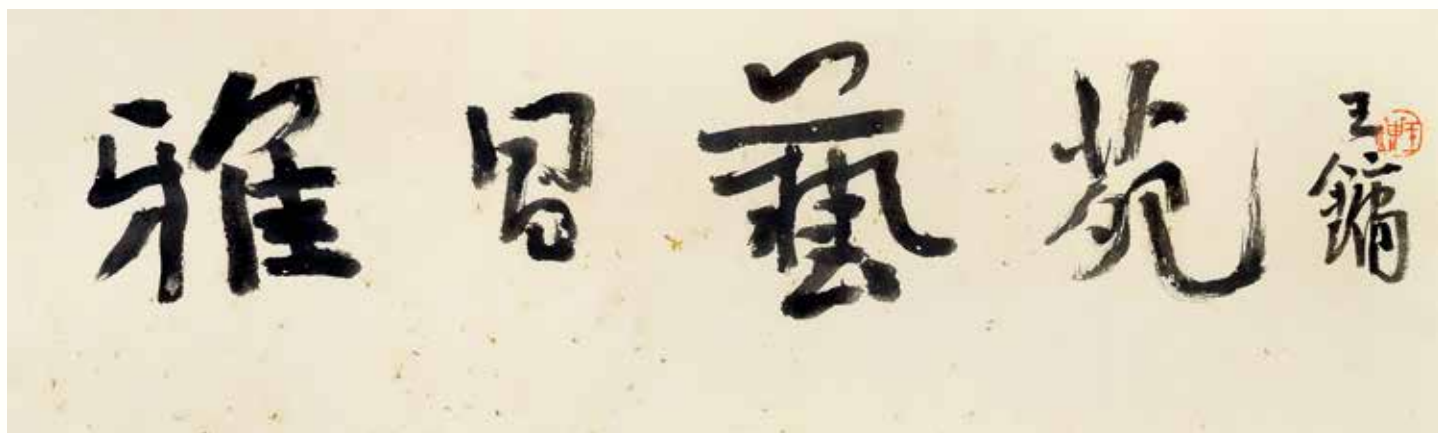 雅昌藝苑
王鏞